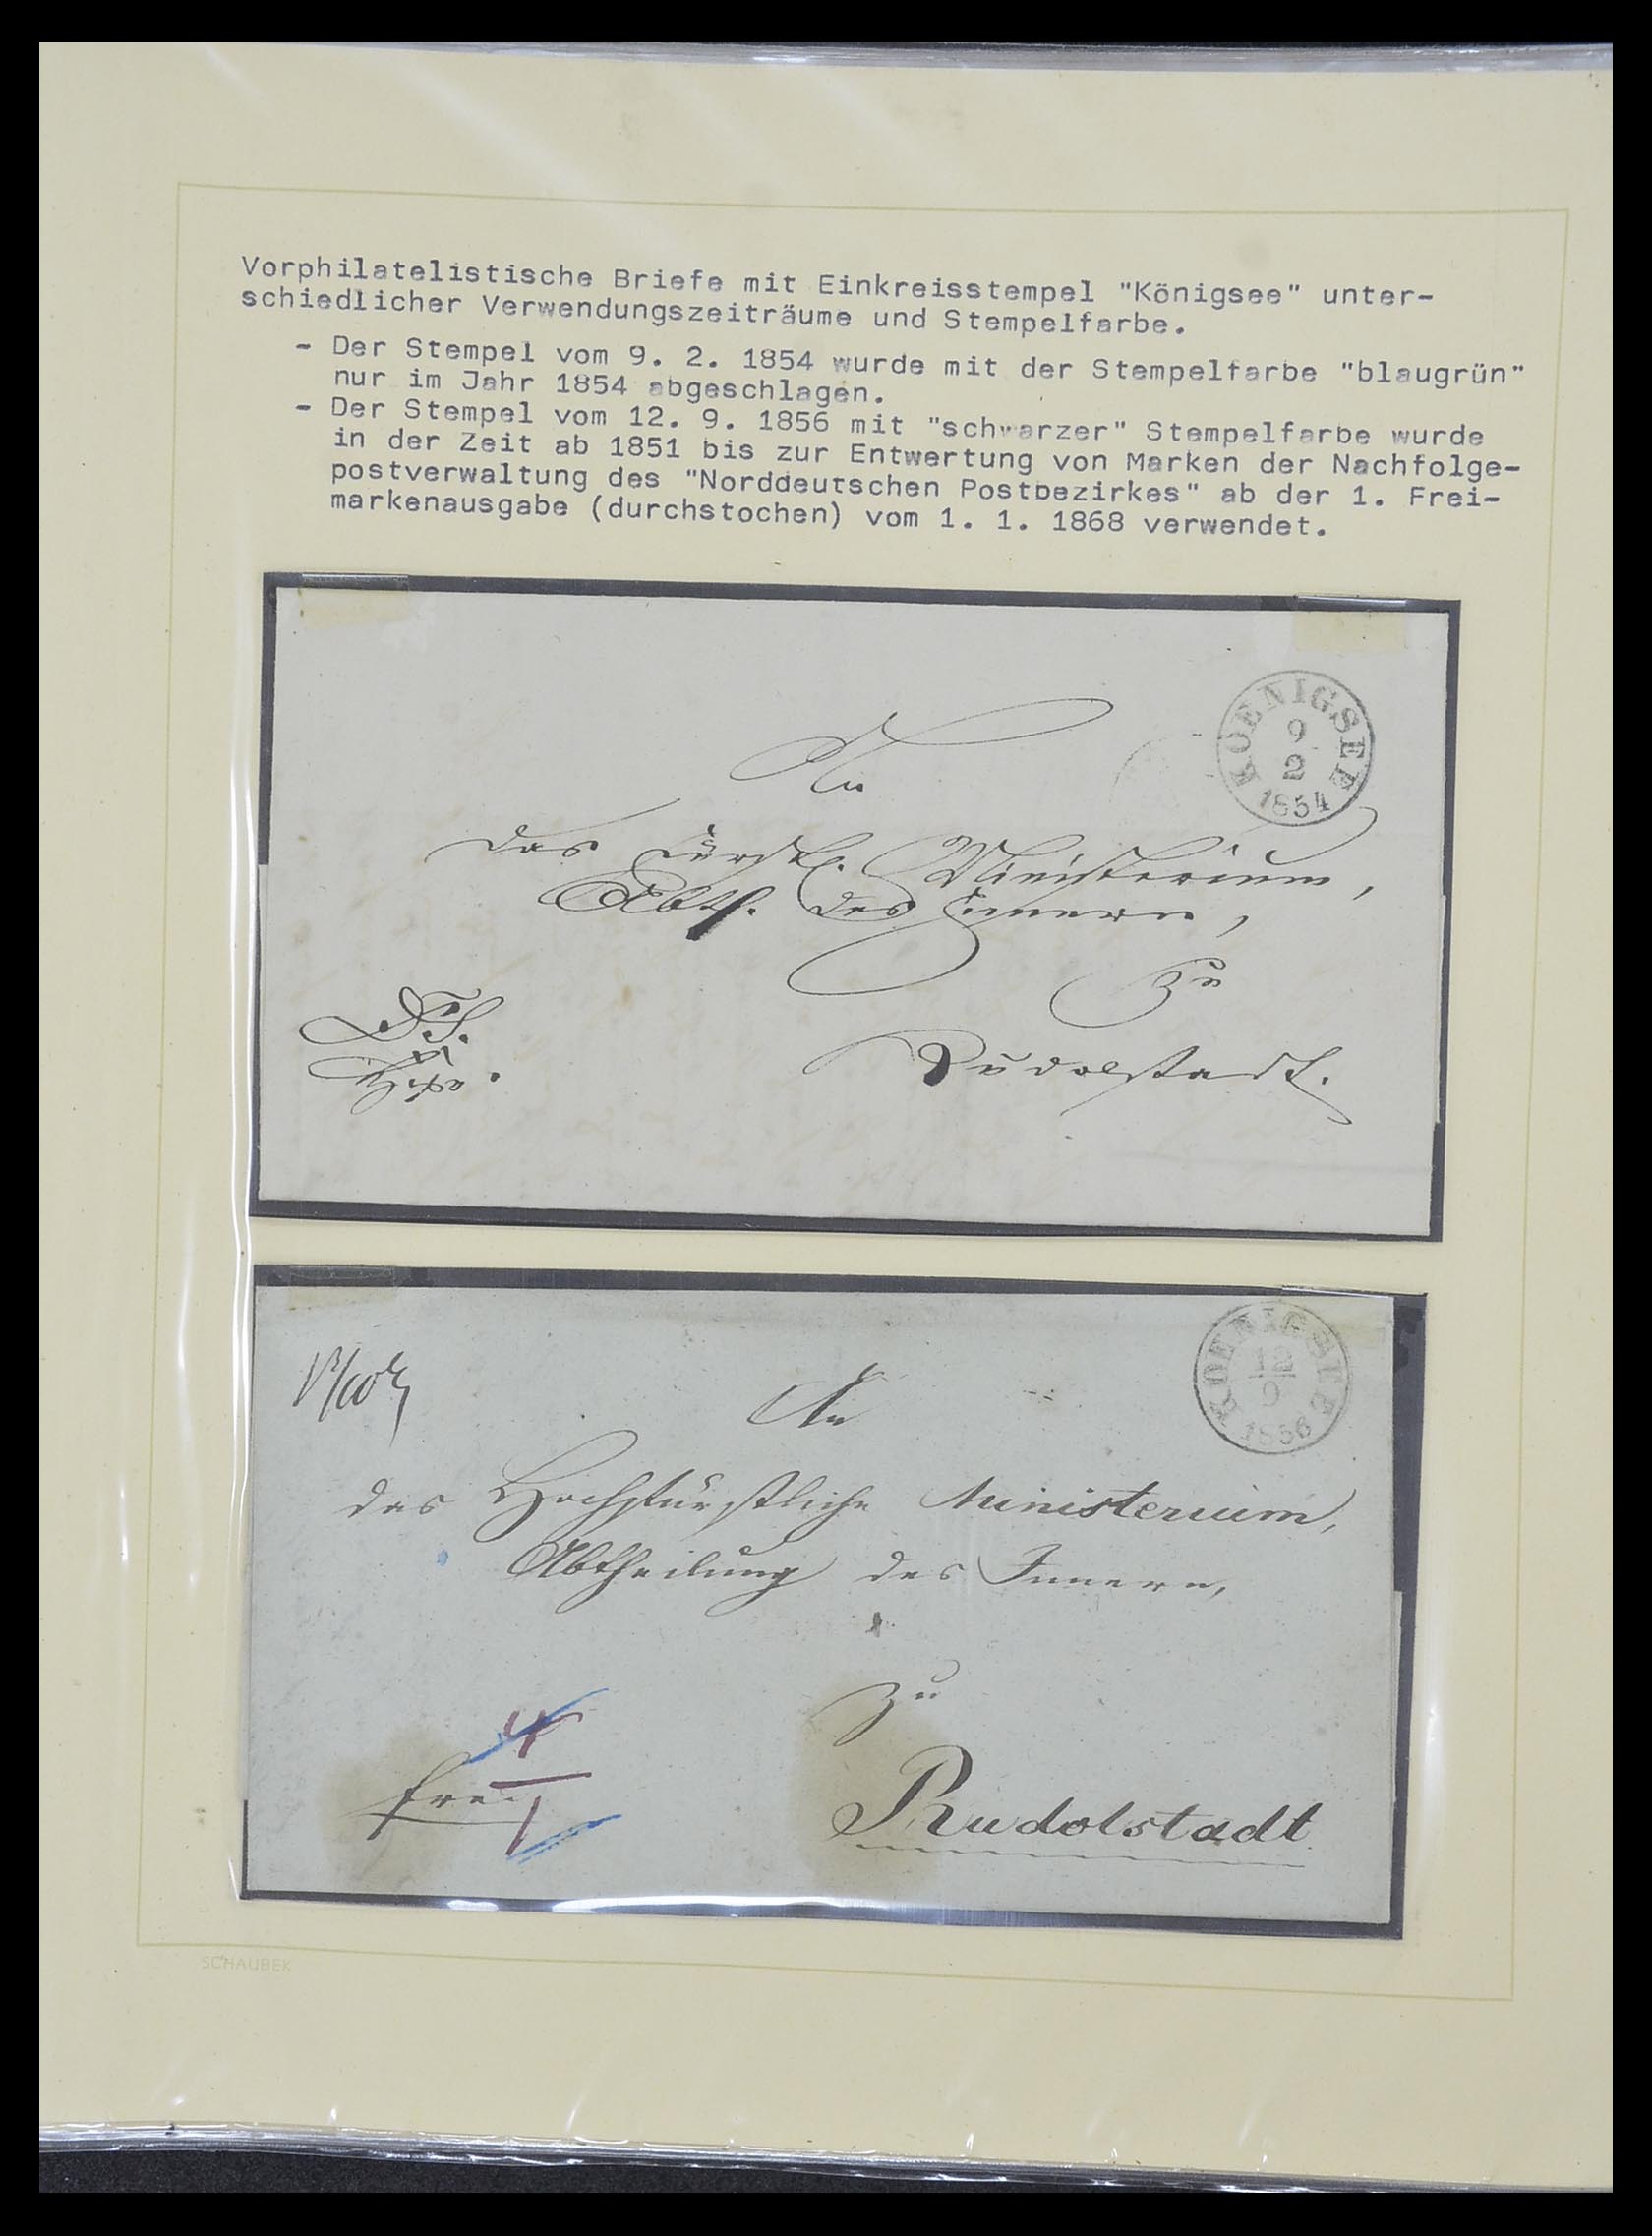 Vorphilatelistische Briefe mit Einkreisstempel "Königsee" unter-
schiedlicher Verwendungszeiträume und Stempelfarbe.
- Der Stempel vom 9. 2. 1854 wurde mit der Stempelfarbe "blaugrün"
nur im Jahr 1854 abgeschlagen.
- Der Stempel vom 12. 9. 1856 mit "schwarzer" Stempelfarbe wurde
in der Zeit ab 1851 bis zur Entwertung von Marken der Nachfolge-
postverwaltung des "Norddeutschen Postbezirkes" ab der 1. Frei-
markenausgabe (durchstochen) vom 1. 1. 1868 verwendet.
KOENIGSEE
9
2
1854
An
das Fürstl. Ministerium,
Abth. des Innern,
zu
Rudolstadt.
KOENIGSEE
12
9
1856
An
das Hochfürstliche Ministerium,
Abtheilung des Innern,
zu
4
frei
1
Rudolstadt
SCHAUBEK